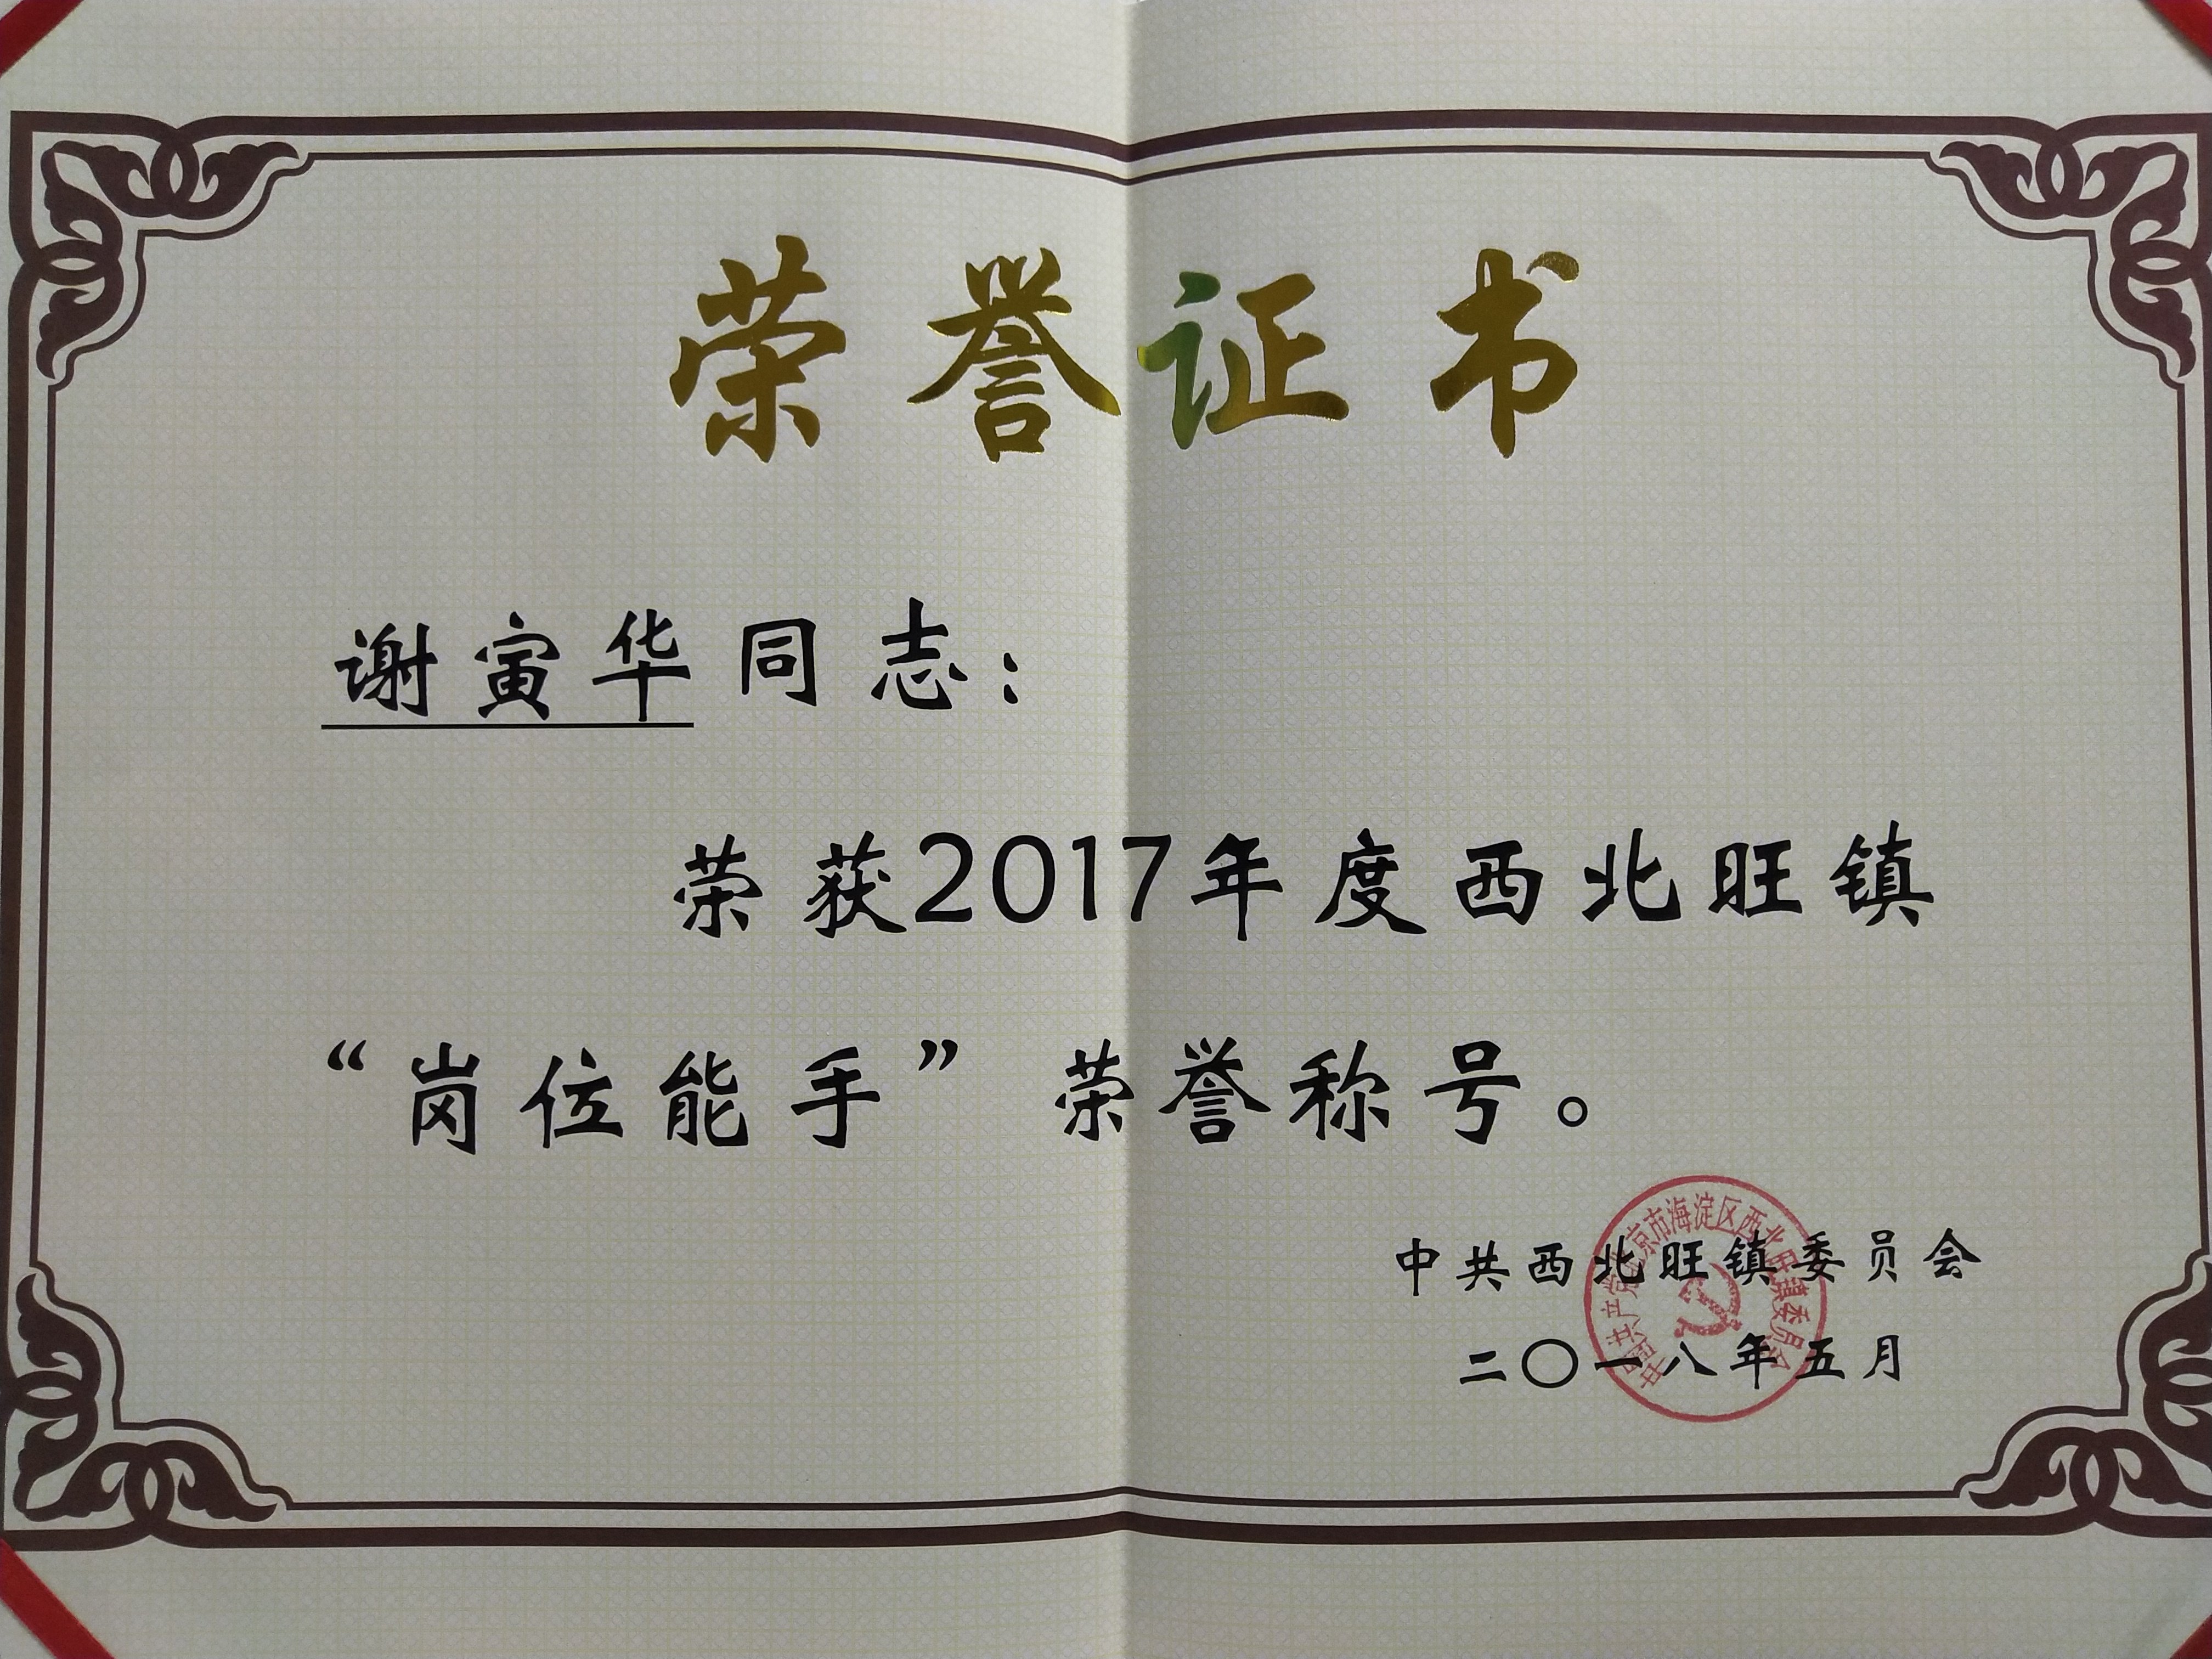 荣誉证书
谢寅华同志：
荣获2017年度西北旺镇
“岗位能手”荣誉称号。
中共西北旺镇委员会
二〇一八年五月
中国共产党北京市海淀区西北旺镇委员会